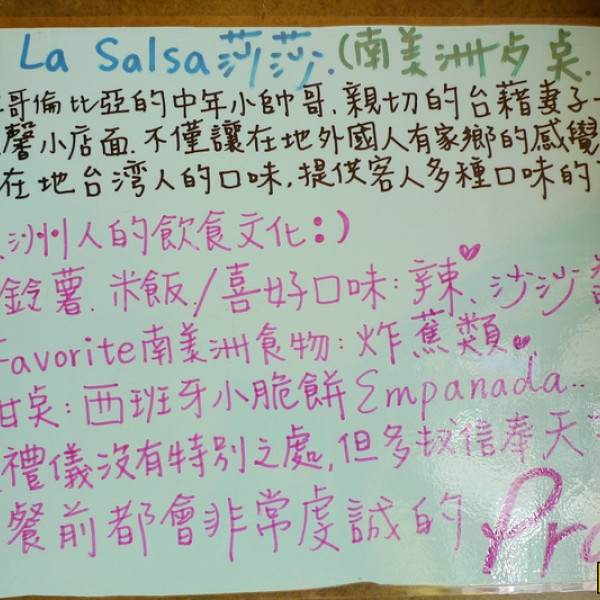 La Salsa莎莎.(南美洲
哥倫比亞的中年小帥哥.親切的台藉妻子
馨小店面.不僅讓在地外國人有家鄉的感覺
在地台湾人的口味,提供客人多種口味的
洲人的飲食文化:)
鈴薯.米飯/喜好口味:辣、沙沙
Favorite南美洲食物:炸蕉類
甜点:西班牙小脆餅Empanada..
禮儀沒有特別之處,但多数信奉天
餐前都會非常虔誠的Pra